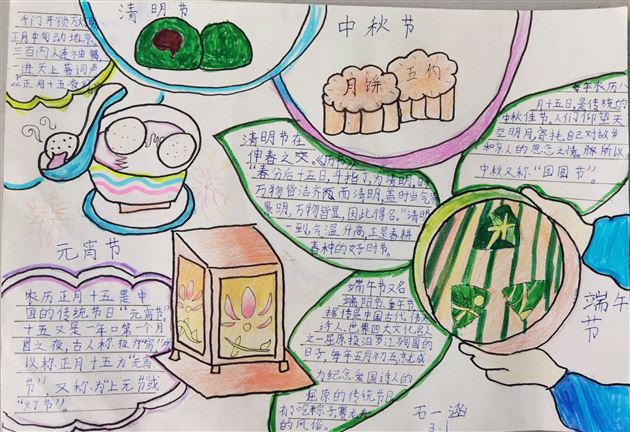 清明节
中秋节
千门开锁放
正月中旬动地京
三百内人连袖舞
一进天上著词声
《正月十五夜
月饼
五仁
每年农历八
月十五日，是传统的
中秋佳节。人们仰望天
空明月，寄托自己对故乡
和亲人的思念之情。所以
中秋又称“团圆节”。
清明节在
仲春之交。《历书》
“春分后十五日，斗指丁，为清明，时
万物皆洁齐而清明，盖时当气
景明，万物皆显，因此得名。”清明
一到，气温升高，正是春耕
春种的大好时节。
元宵节
农历正月十五是中
国的传统节日“元宵节”
十五又是一年中第一个月
圆之夜，古人称夜为“宵”
以称正月十五为“元宵
节”，又称为“上元节或
“灯节”。
端午节又名
端阳节、重午节
据传是中国古代伟大
诗人、世界四大文化名人
之一屈原投汨罗江殉国的
日子，每年五月初五就成
为纪念爱国诗人的
屈原的传统节日
有了吃粽子赛龙舟
的风俗。
端午
节
石一涵
3.1